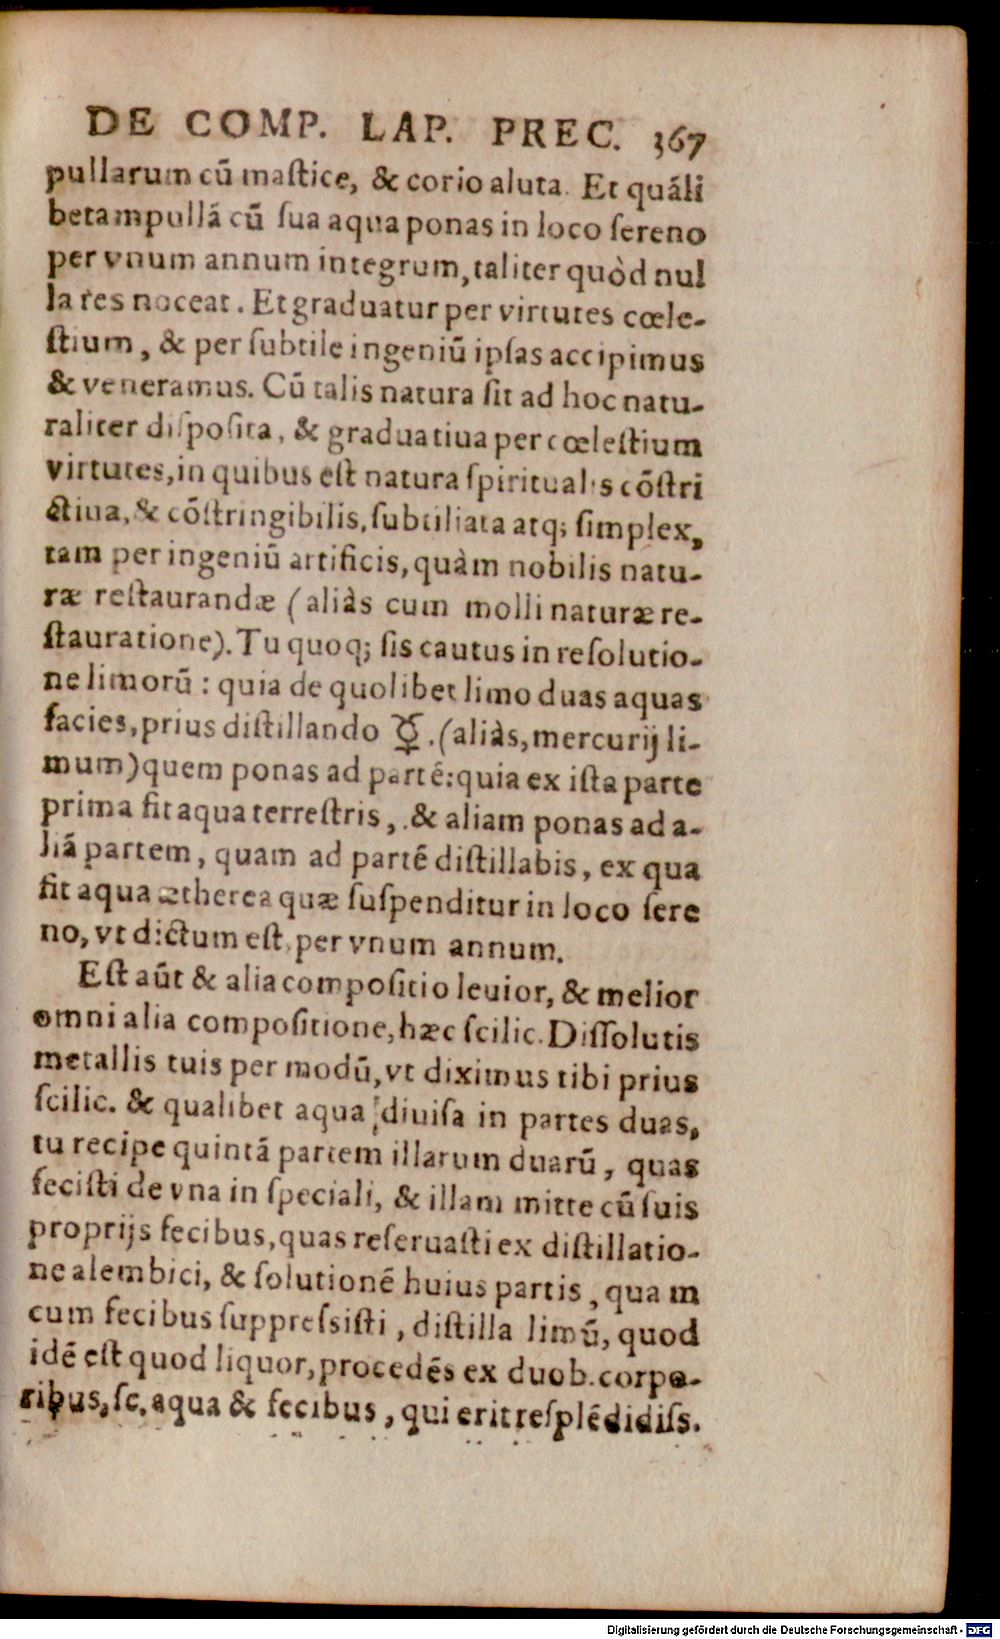 DE COMP. LAP. PREC. 367
pullarum cũ maſtice, & corio aluta. Et quáli
bet ampullã cũ ſua aqua ponas in loco ſereno
per vnum annum integrum, taliter quòd nul
la res noceat. Et graduatur per virtutes cœle-
ſtium, & per ſubtile ingeniũ ipſas accipimus
& veneramus. Cũ talis natura ſit ad hoc natu-
raliter diſpoſita, & graduatiua per cœleſtium
virtutes, in quibus eſt natura ſpiritualis cõſtri
ctiua, & cõſtringibilis, ſubtiliata atq; ſimplex,
tam per ingeniũ artificis, quàm nobilis natu-
ræ reſtaurandæ (aliàs cum molli naturæ re-
ſtauratione). Tu quoq; ſis cautus in reſolutio-
ne limorũ : quia de quolibet limo duas aquas
facies, prius diſtillando ☿. (aliàs, mercurij li-
mum) quem ponas ad partẽ: quia ex iſta parte
prima fit aqua terreſtris, & aliam ponas ad a-
liã partem, quam ad partẽ diſtillabis, ex qua
fit aqua ætherea quæ ſuſpenditur in loco ſere
no, vt dictum eſt, per vnum annum.
Eſt aũt & alia compoſitio leuior, & melior
omni alia compoſitione, hæc ſcilic. Diſſolutis
metallis tuis per modũ, vt diximus tibi prius
ſcilic. & qualibet aqua diuiſa in partes duas,
tu recipe quintã partem illarum duarũ, quas
feciſti de vna in ſpeciali, & illam mitte cũ ſuis
proprijs fecibus, quas reſeruaſti ex diſtillatio-
ne alembici, & ſolutionẽ huius partis, quam
cum fecibus ſuppreſsiſti, diſtilla limũ, quod
idẽ eſt quod liquor, procedẽs ex duob. corpo-
ribus, ſc. aqua & fecibus, qui erit reſplẽdidiſs.
Digitalisierung gefördert durch die Deutsche Forschungsgemeinschaft - DFG